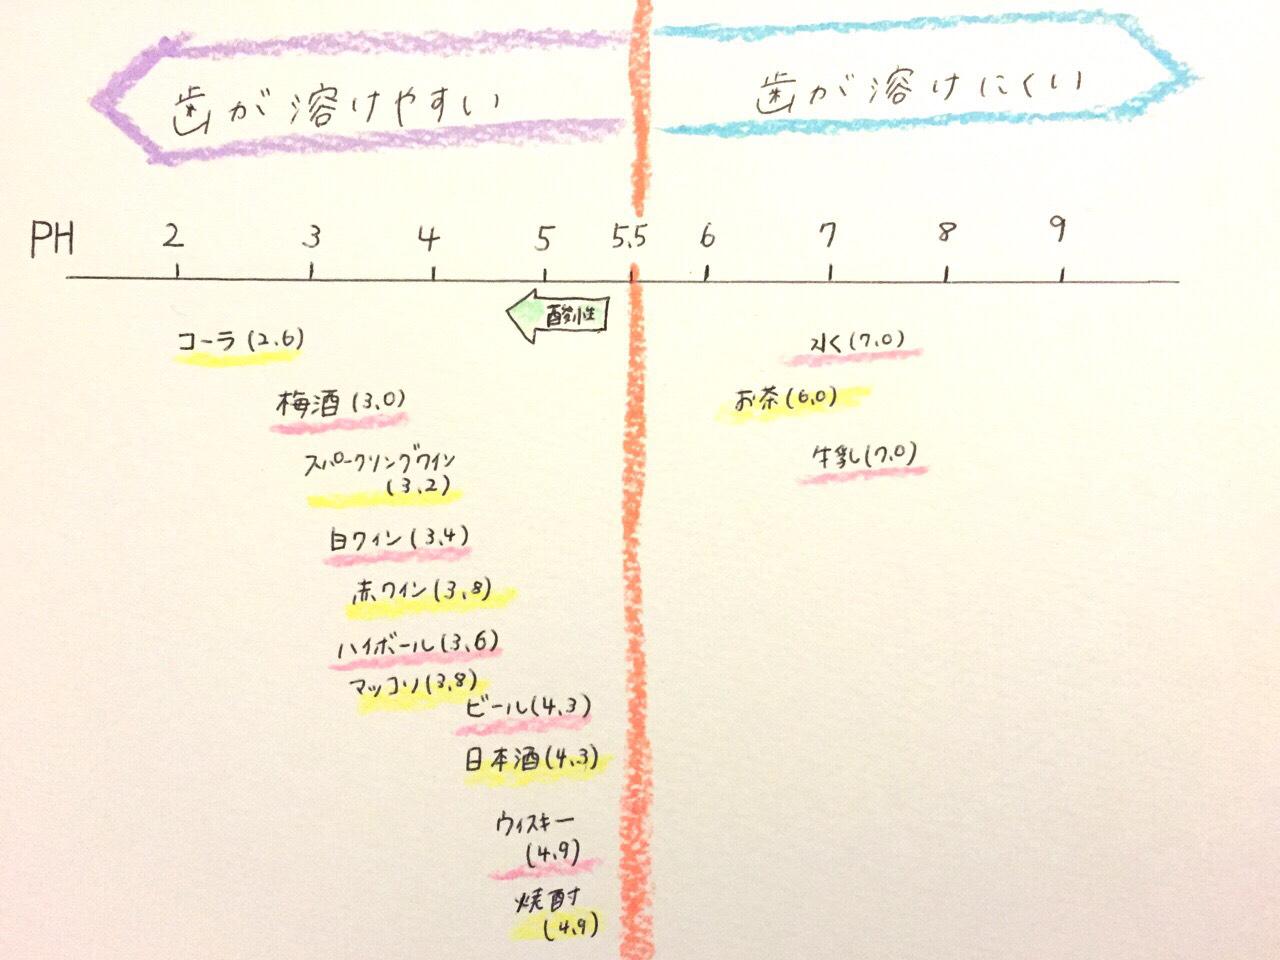 歯が溶けやすい
歯が溶けにくい
PH 2 3 4 5 5.5 6 7 8 9
酸性
コーラ(2.6)
水(7.0)
梅酒(3.0)
お茶(6.0)
スパークリングワイン
(3.2)
牛乳(7.0)
白ワイン(3.4)
赤ワイン(3.8)
ハイボール(3.6)
マッコリ(3.8)
ビール(4.3)
日本酒(4.3)
ウィスキー
(4.9)
焼酎
(4.9)